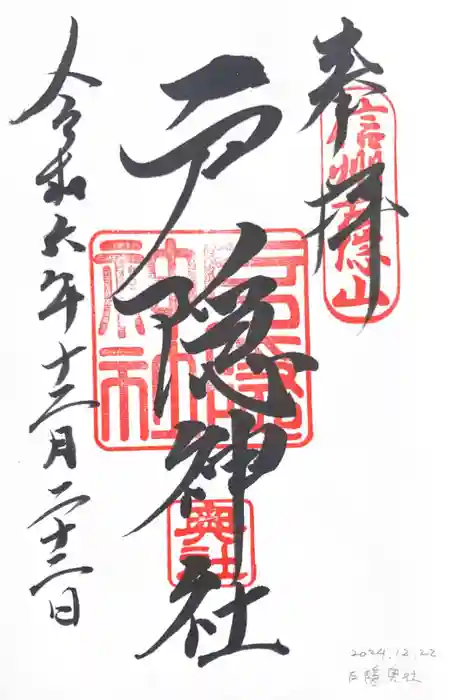 奉拝
信州戸隠山
戸隠神社
戸隠神社
奥社
令和六年十二月二十二日
2024.12.22
戸隠奥社